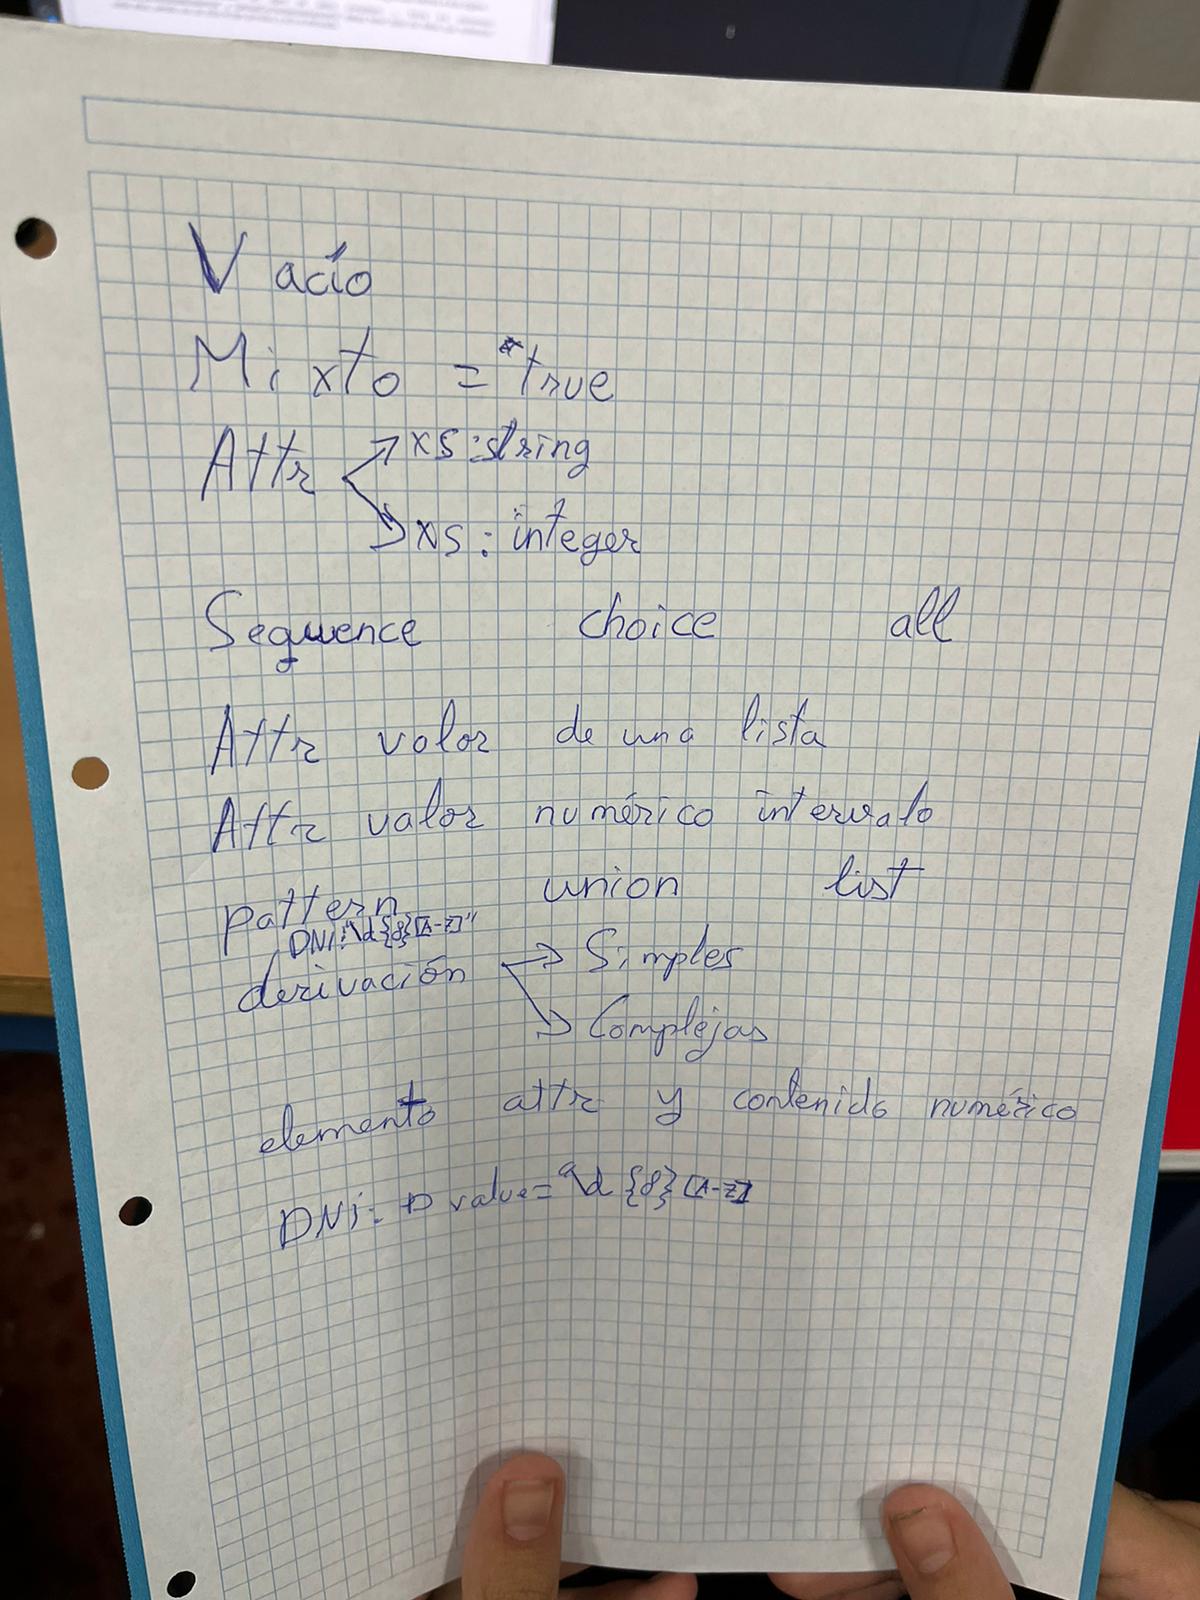 Vacío
Mixto = "true
Attr → xs:string
→ xs: integer
Sequence choice all
Attr valor de una lista
Attr valor numérico intervalo
pattern union list
DNI: "\d{8}[A-Z]"
derivación → Simples
→ Complejas
elemento attr y contenido numérico
DNi: → value= "\d {8} [A-Z]